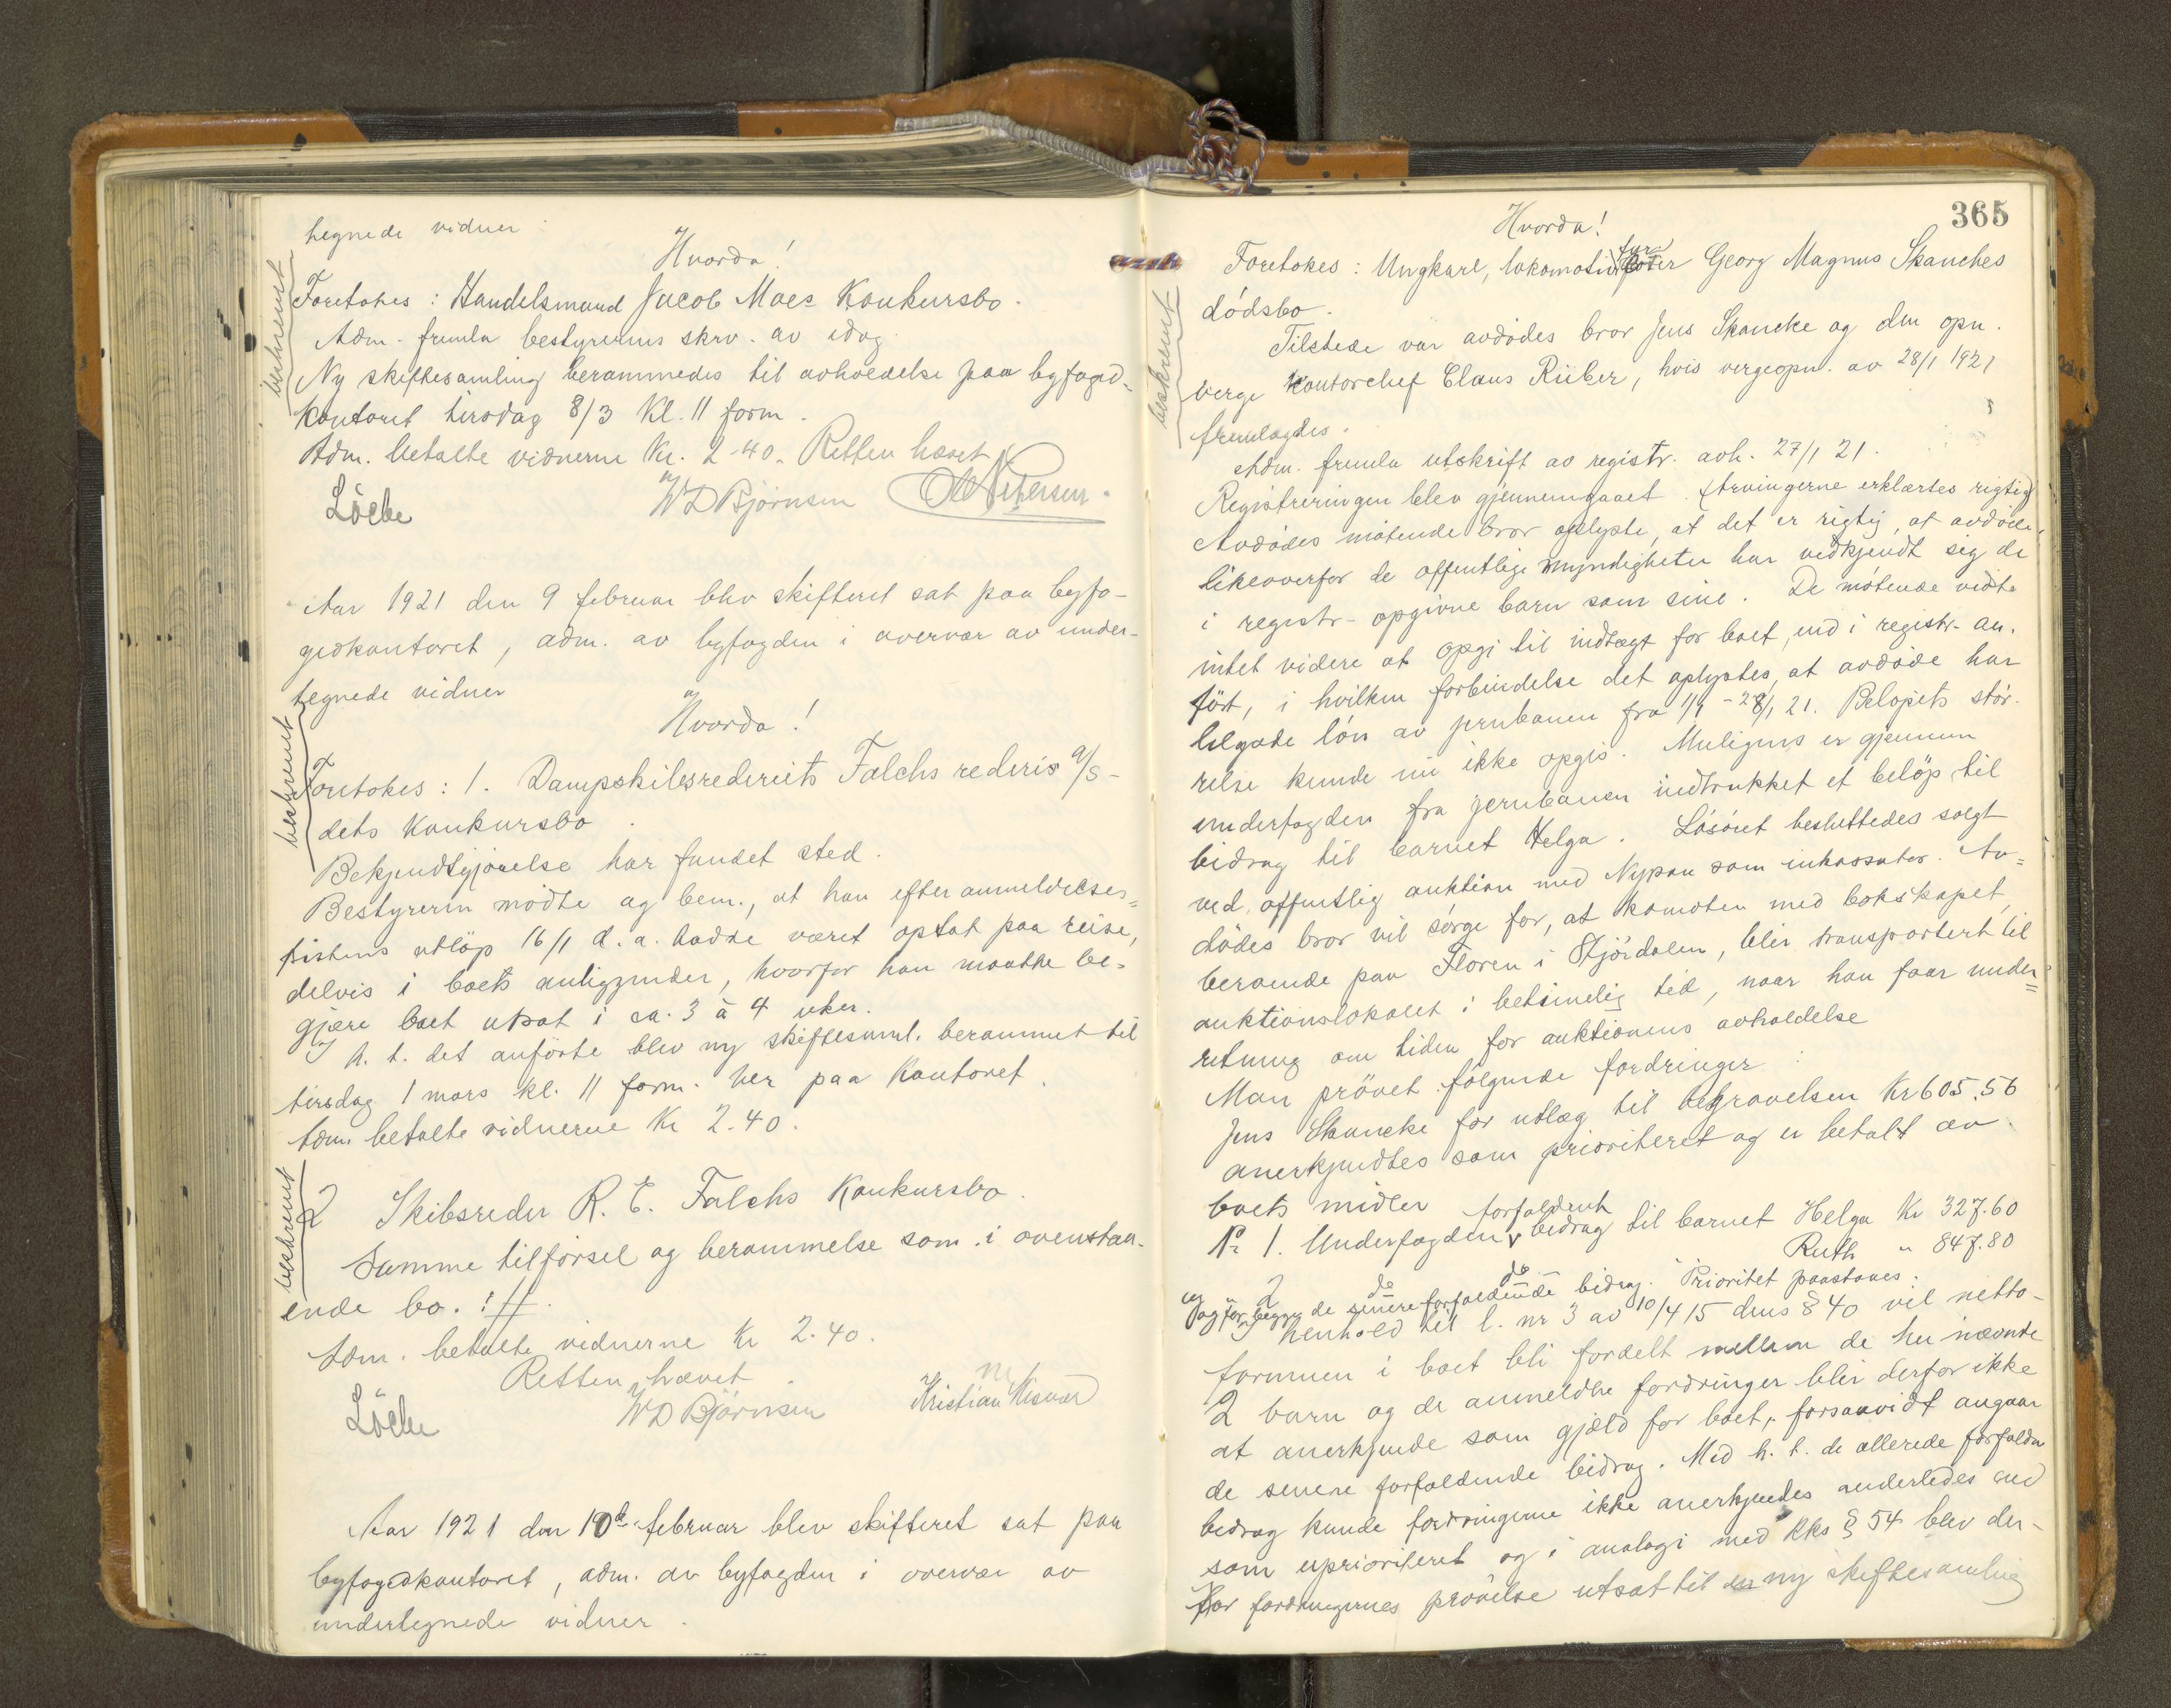 tegnede vidner
Hvorda!
beskrevet
Foretokes: Handelsmand Jacob Moes Konkursbo.
Adm. fremla bestyrerens skrv. av idag
Ny skiftesamling berammedes til avholdelse paa byfoged-
kontoret tirsdag 8/3 Kl. 11 form.
Adm. betalte vidnerne Kr. 2.40. Retten hævet
Löche W D Björnsen Ole Petersen.
Aar 1921 den 9 februar blev skifteret sat paa byfo-
gedkontoret, adm. av byfogden i overvær av under-
tegnede vidner
Hvorda!
beskrevet
Foretokes: 1. Dampskibsrederiets Falchs rederis a/s-
dets Konkursbo.
Bekjendtgjörelse har fundet sted.
Bestyreren mödte og bem., at han efter anmeldelses-
fristens utlöp 16/1 d. a. hadde været optat paa reise,
delvis i boets anliggender, hvorfor han maatte be-
gjære boet utsat i ca. 3 à 4 uker.
I h. t. det anförte blev ny skiftesaml. berammet til
tirsdag 1 mars kl. 11 form. her paa Kontoret.
Adm. betalte vidnerne Kr 2.40.
beskrevet
2 Skibsreder R. E. Falchs Konkursbo.
Samme tilförsel og berammelse som i ovenstaa-
ende bo.
Adm. betalte vidnerne Kr 2.40.
Retten hævet.
Löche W D Björnsen Kristian
Aar 1921 den 10de februar blev skifteret sat paa
byfogedkontoret, adm. av byfogden i overvær av
undertegnede vidner.
365
Hvorda!
beskrevet
Foretokes: Ungkarl, lokomotivfyrböter Georg Magnus Skanches
dödsbo.
Tilstede var avdödes bror Jens Skancke og den opn.
verge Kontorchef Claus Rüber, hvis vergeopn. av 28/1 1921
fremlagdes.
Adm. fremla utskrift av registr. avh. 27/1 21.
Registreringen blev gjennemgaaet. Arvingerne erklærtes rigtig
Avdödes mötende bror oplyste, at det er rigtig, at avdöde
likeoverfor de offentlige myndigheter har vedkjendt sig de
i registr. opgivne barn som sine. De mötende vidste
intet videre at opgi til indtægt for boet, end i registr. an-
fört, i hvilken forbindelse det oplystes, at avdöde har
tilgode lön av jernbanen fra 1/1 - 28/1 21. Belöpets stör-
relse kunde nu ikke opgis. Muligens er gjennem
underfogden fra jernbanen indtrukket et belöp til
bidrag til barnet Helga. Lösöret besluttedes solgt
ved offentlig auktion med Nypan som inkassator. Av-
dödes bror vil sörge for, at komoten med bokskapet,
beroende paa Floren i Stjördalen, blir transportert til
auktionslokalet i betimelig tid, naar han faar under-
retning om tiden for auktionens avholdelse
Man prövet fölgende fordringer:
Jens Skancke for utlæg til begravelsen Kr 605.56
anerkjendtes som prioriteret og er betalt av
boets midler
No 1. Underfogden, forfaldent bidrag til barnet Helga Kr 327.60
" 2 do do Ruth " 847.80
og for begge de senere forfaldende bidrag. Prioritet paastaaes.
I henhold til l. nr 3 av 10/4 15 dens § 40 vil netto-
formuen i boet bli fordelt mellem de her nævnte
2 barn og de anmeldte fordringer blir derfor ikke
at anerkjende som gjæld for boet, forsaavidt angaar
de senere forfaldende bidrag. Med h. t. de allerede forfaldne
bidrag kunde fordringerne ikke anerkjendes anderledes end
som uprioriteret og i analogi med Kks § 54 blev der-
for fordringernes prövelse utsat til ny skiftesamling